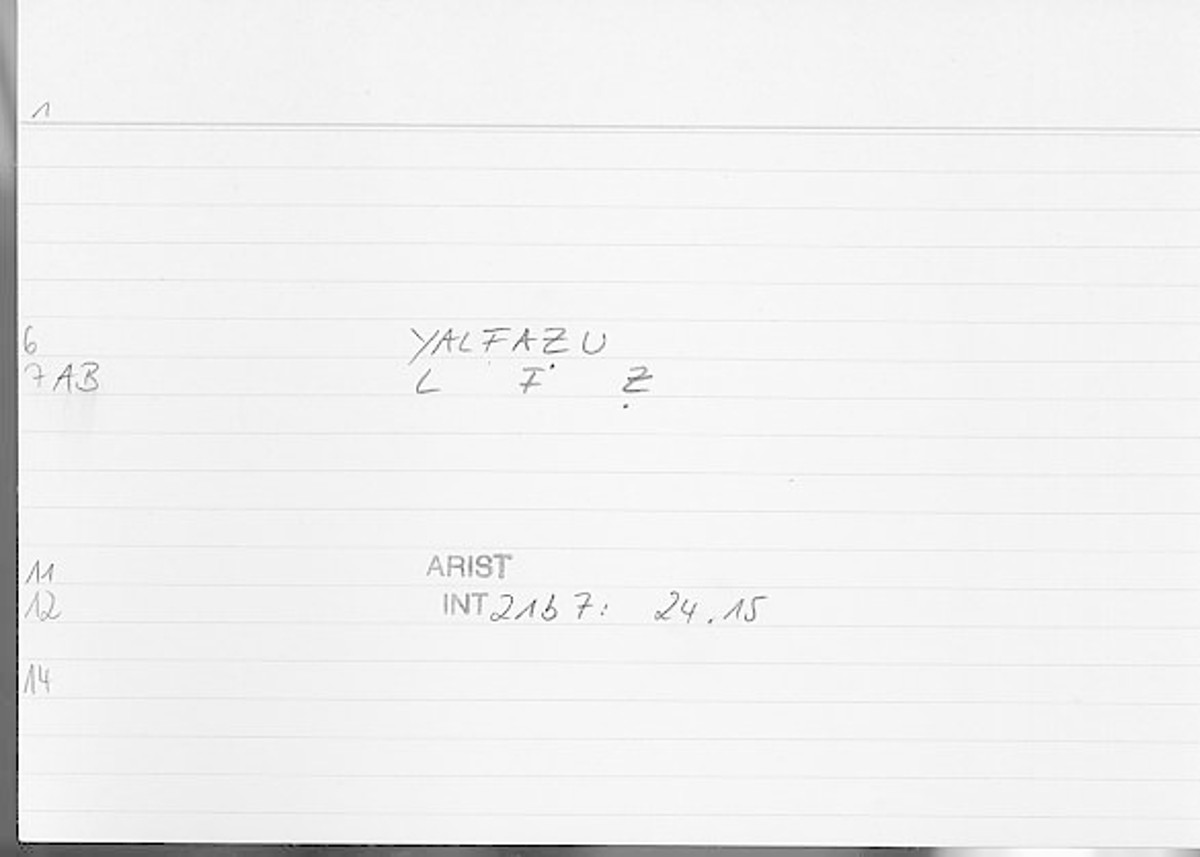 1
6 YALFAZU
7 AB L F Ẓ
11 ARIST
12 INT 21b 7: 24.15
14